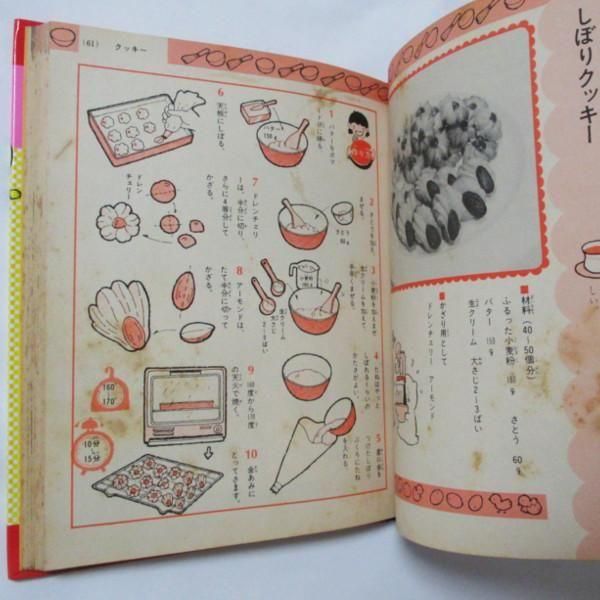 しぼりクッキー
■材料(40〜50個分)
ふるった小麦粉 180g さとう 60g
バター 150g
生クリーム 大さじ2〜3ばい
■かざり用として
ドレンチェリー アーモンド
(61) クッキー
作り方
1 バターをボウル
バター 150g
2 さとうを加え、
さとう 60g
3 小麦粉を加えまぜ
生クリームを加えて、
手早くまぜる。
小麦粉 180g
生クリーム
大さじ
2〜3ばい
4 たねはやっと
しぼれるくらいの
かたさがよい。
5
つけたしぼり
ぶくろにたね
を入れる。
6 天板にしぼる。
7 ドレンチェリ
ーは、半分に切り、
さらに4等分して
かざる。
ドレン
チェリー
8 アーモンドは、
たて半分に切って
かざる。
9 160度から170度
の天火で焼く。
160°
170°
10分
15分
10 金あみに
とってさます。